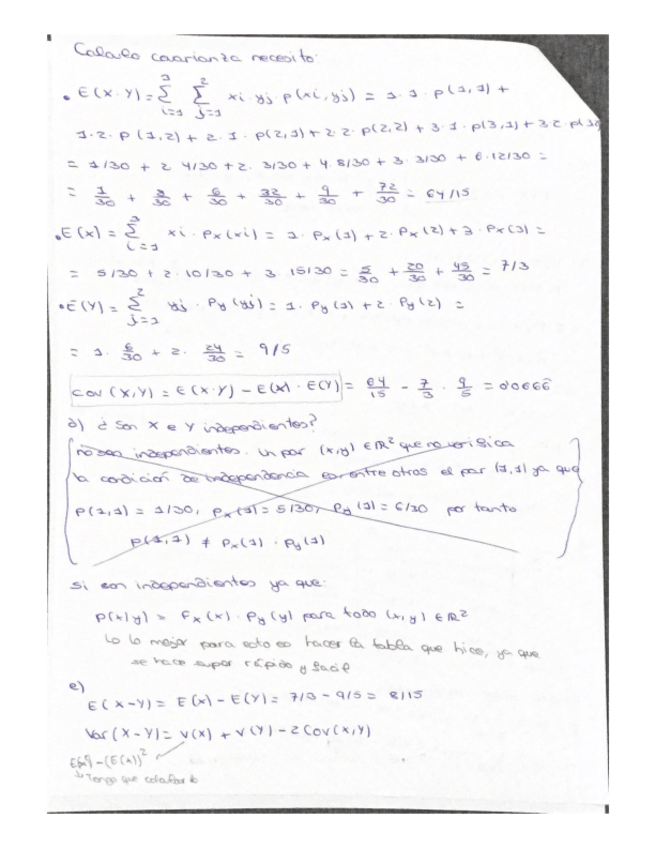 Calculo covarianza necesito:
• E(X·Y) = Σ_{i=1}^{3} Σ_{j=1}^{2} xi·yj p(xi, yj) = 1·1·p(1,1) +
1·2·p(1,2) + 2·1·p(2,1) + 2·2·p(2,2) + 3·1·p(3,1) + 3·2·p(3,
= 1/30 + 2·4/30 + 2·3/30 + 4·8/30 + 3·3/30 + 6·12/30 =
= 1/30 + 8/30 + 6/30 + 32/30 + 9/30 + 72/30 = 64/15
• E(X) = Σ_{i=1}^{3} xi·Px(xi) = 1·Px(1) + 2·Px(2) + 3·Px(3) =
= 5/30 + 2·10/30 + 3·15/30 = 5/30 + 20/30 + 45/30 = 7/3
• E(Y) = Σ_{j=1}^{2} yj·Py(yj) = 1·Py(1) + 2·Py(2) =
= 1·6/30 + 2·24/30 = 9/5
COV(X,Y) = E(X·Y) - E(X)·E(Y) = 64/15 - 7/3·9/5 = 0'0666
d) ¿Son X e Y independientes?
no son independientes. Un par (x,y) ∈ ℝ² que no verifica
la condición de independencia es, entre otros el par (1,1) ya que
p(1,1) = 1/30, Px(1) = 5/30, Py(1) = 6/30 por tanto
p(1,1) ≠ Px(1)·Py(1)
Si son independientes ya que:
P(x,y) = Px(x)·Py(y) para todo (x,y) ∈ ℝ²
Lo mejor para esto es hacer la tabla que hice, ya que
se hace super rápido y facil
e)
E(X-Y) = E(X) - E(Y) = 7/3 - 9/5 = 8/15
Var(X-Y) = V(X) + V(Y) - 2Cov(X,Y)
- (E(X))²
Tengo que